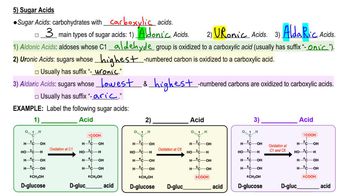 5) Sugar Acids
●Sugar Acids: carbohydrates with carboxylic acids.
□ 3 main types of sugar acids: 1) Aldonic Acids. 2) URonic Acids. 3) AldaRic Acids.
1) Aldonic Acids: aldoses whose C1 aldehyde group is oxidized to a carboxylic acid (usually has suffix "-onic").
2) Uronic Acids: sugars whose highest-numbered carbon is oxidized to a carboxylic acid.
□ Usually has suffix "-uronic"
3) Aldaric Acids: sugars whose lowest & highest-numbered carbons are oxidized to carboxylic acids.
□ Usually has suffix "-aric"
EXAMPLE: Label the following sugar acids:
1) Acid 2) Acid 3) Acid
Oxidation at C1
Oxidation at C6
Oxidation at C1 and C6
D-glucose D-gluc acid D-glucose D-gluc acid D-glucose D-gluc acid